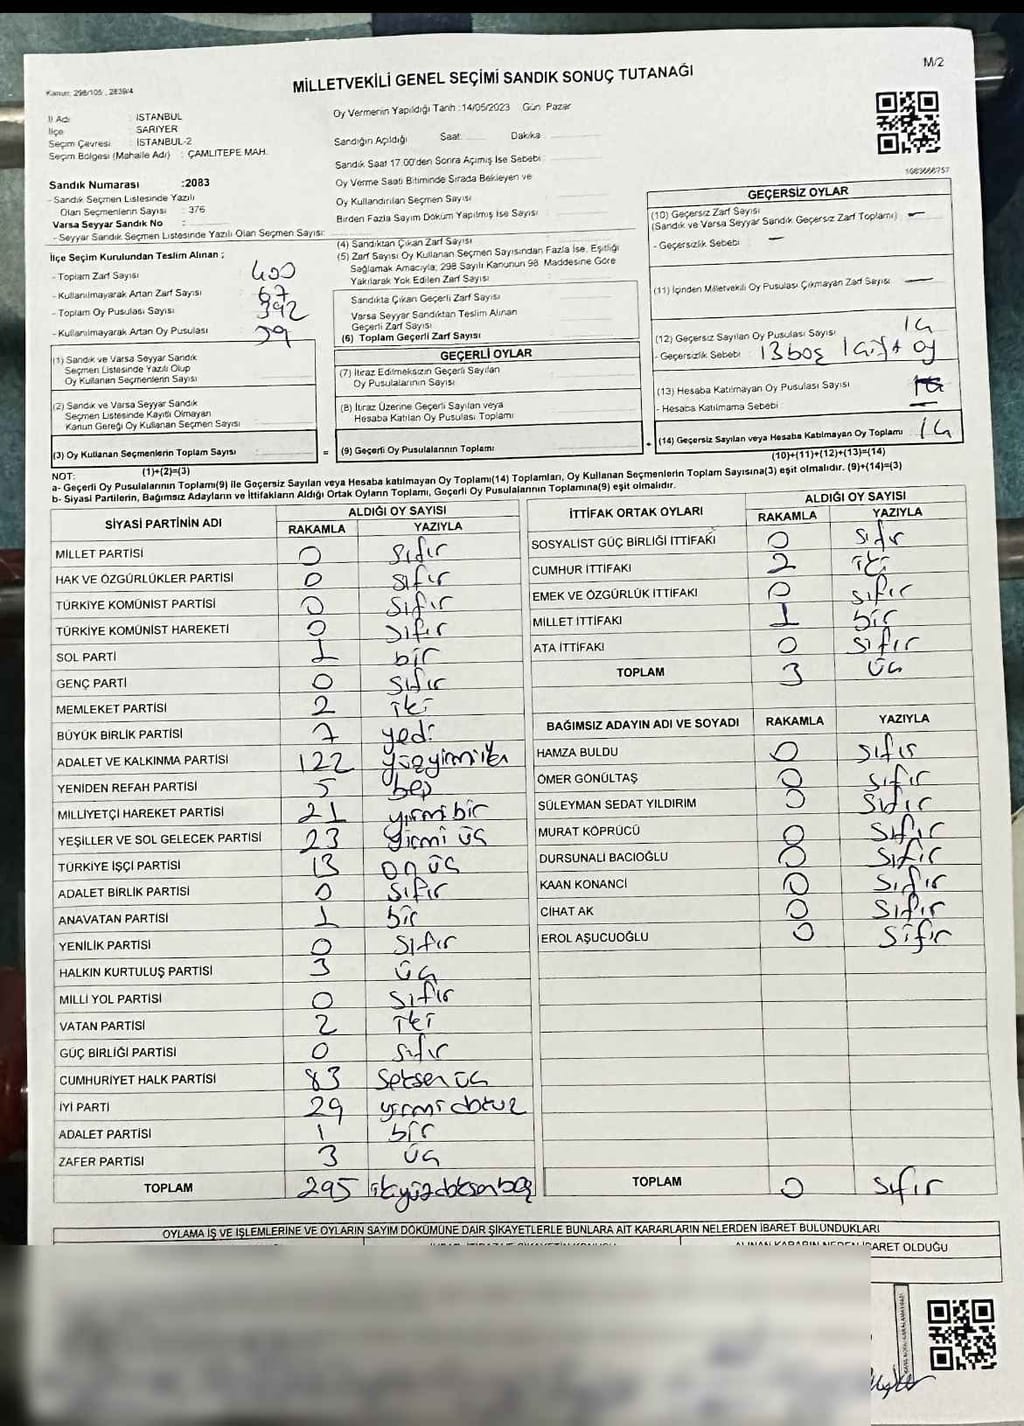 M/2
MİLLETVEKİLİ GENEL SEÇİMİ SANDIK SONUÇ TUTANAĞI
Kanun: 298/105 , 2839/4
İl Adı : İSTANBUL
İlçe : SARIYER
Seçim Çevresi : İSTANBUL-2
Seçim Bölgesi (Mahalle Adı) : ÇAMLITEPE MAH.
Oy Vermenin Yapıldığı Tarih : 14/05/2023 Gün Pazar
Sandığın Açıldığı Saat: Dakika
Sandık Saat 17:00'den Sonra Açılmış İse Sebebi
Oy Verme Saati Bitiminde Sırada Bekleyen ve
Oy Kullandırılan Seçmen Sayısı
Birden Fazla Sayım Döküm Yapılmış İse Sayısı
Sandık Numarası :2083
- Sandık Seçmen Listesinde Yazılı
Olan Seçmenlerin Sayısı : 376
Varsa Seyyar Sandık No :
- Seyyar Sandık Seçmen Listesinde Yazılı Olan Seçmen Sayısı:
İlçe Seçim Kurulundan Teslim Alınan ;
- Toplam Zarf Sayısı 400
- Kullanılmayarak Artan Zarf Sayısı 67
- Toplam Oy Pusulası Sayısı 392
- Kullanılmayarak Artan Oy Pusulası
(1) Sandık ve Varsa Seyyar Sandık
Seçmen Listesinde Yazılı Olup
Oy Kullanan Seçmenlerin Sayısı
(2) Sandık ve Varsa Seyyar Sandık
Seçmen Listesinde Kayıtlı Olmayan
Kanun Gereği Oy Kullanan Seçmen Sayısı
(3) Oy Kullanan Seçmenlerin Toplam Sayısı =
(1)+(2)=(3)
(4) Sandıktan Çıkan Zarf Sayısı
(5) Zarf Sayısı Oy Kullanan Seçmen Sayısından Fazla İse, Eşitliği
Sağlamak Amacıyla; 298 Sayılı Kanunun 98. Maddesine Göre
Yakılarak Yok Edilen Zarf Sayısı
Sandıkta Çıkan Geçerli Zarf Sayısı
Varsa Seyyar Sandıktan Teslim Alınan
Geçerli Zarf Sayısı
(6) Toplam Geçerli Zarf Sayısı
GEÇERLİ OYLAR
(7) İtiraz Edilmeksizin Geçerli Sayılan
Oy Pusulalarının Sayısı
(8) İtiraz Üzerine Geçerli Sayılan veya
Hesaba Katılan Oy Pusulası Toplamı
(9) Geçerli Oy Pusulalarının Toplamı +
GEÇERSİZ OYLAR
(10) Geçersiz Zarf Sayısı —
(Sandık ve Varsa Seyyar Sandık Geçersiz Zarf Toplamı)
- Geçersizlik Sebebi —
(11) İçinden Milletvekili Oy Pusulası Çıkmayan Zarf Sayısı —
(12) Geçersiz Sayılan Oy Pusulası Sayısı 14
- Geçersizlik Sebebi 13 boş 1 çift oy
(13) Hesaba Katılmayan Oy Pusulası Sayısı
- Hesaba Katılmama Sebebi —
(14) Geçersiz Sayılan veya Hesaba Katılmayan Oy Toplamı 14
(10)+(11)+(12)+(13)=(14)
NOT:
a- Geçerli Oy Pusulasının Toplamı(9) ile Geçersiz Sayılan veya Hesaba katılmayan Oy Toplamı(14) Toplamları, Oy Kullanan Seçmenlerin Toplam Sayısına(3) eşit olmalıdır. (9)+(14)=(3)
b- Siyasi Partilerin, Bağımsız Adayların ve İttifakların Aldığı Ortak Oyların Toplamı, Geçerli Oy Pusulalarının Toplamına(9) eşit olmalıdır.
SİYASİ PARTİNİN ADI ALDIĞI OY SAYISI
RAKAMLA YAZIYLA
MİLLET PARTİSİ 0 sıfır
HAK VE ÖZGÜRLÜKLER PARTİSİ 0 sıfır
TÜRKİYE KOMÜNİST PARTİSİ 0 sıfır
TÜRKİYE KOMÜNİST HAREKETİ 0 sıfır
SOL PARTİ 1 bir
GENÇ PARTİ 0 sıfır
MEMLEKET PARTİSİ 2 iki
BÜYÜK BİRLİK PARTİSİ 7 yedi
ADALET VE KALKINMA PARTİSİ 122 yüzyirmiiki
YENİDEN REFAH PARTİSİ 5 beş
MİLLİYETÇİ HAREKET PARTİSİ 21 yirmi bir
YEŞİLLER VE SOL GELECEK PARTİSİ 23 yirmi üç
TÜRKİYE İŞÇİ PARTİSİ 13 on üç
ADALET BİRLİK PARTİSİ 0 sıfır
ANAVATAN PARTİSİ 1 bir
YENİLİK PARTİSİ 0 sıfır
HALKIN KURTULUŞ PARTİSİ 3 üç
MİLLİ YOL PARTİSİ 0 sıfır
VATAN PARTİSİ 2 iki
GÜÇ BİRLİĞİ PARTİSİ 0 sıfır
CUMHURİYET HALK PARTİSİ 83 seksen üç
İYİ PARTİ 29 yirmi dokuz
ADALET PARTİSİ 1 bir
ZAFER PARTİSİ 3 üç
TOPLAM 295 ikiyüzdoksanbeş
İTTİFAK ORTAK OYLARI ALDIĞI OY SAYISI
RAKAMLA YAZIYLA
SOSYALİST GÜÇ BİRLİĞİ İTTİFAKI 0 sıfır
CUMHUR İTTİFAKI 2 iki
EMEK VE ÖZGÜRLÜK İTTİFAKI 0 sıfır
MİLLET İTTİFAKI 1 bir
ATA İTTİFAKI 0 sıfır
TOPLAM 3 üç
BAĞIMSIZ ADAYIN ADI VE SOYADI RAKAMLA YAZIYLA
HAMZA BULDU 0 sıfır
ÖMER GÖNÜLTAŞ 0 sıfır
SÜLEYMAN SEDAT YILDIRIM 0 sıfır
MURAT KÖPRÜCÜ 0 sıfır
DURSUNALİ BACIOĞLU 0 sıfır
KAAN KONANCİ 0 sıfır
CİHAT AK 0 sıfır
EROL AŞUCUOĞLU 0 sıfır
TOPLAM 0 sıfır
OYLAMA İŞ VE İŞLEMLERİNE VE OYLARIN SAYIM DÖKÜMÜNE DAİR ŞİKAYETLERLE BUNLARA AİT KARARLARIN NELERDEN İBARET BULUNDUKLARI